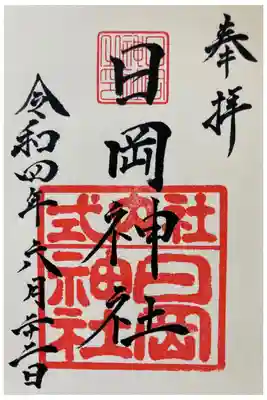 奉拝
日岡神社
式内社
日岡
神社
令和四年六月廿 日